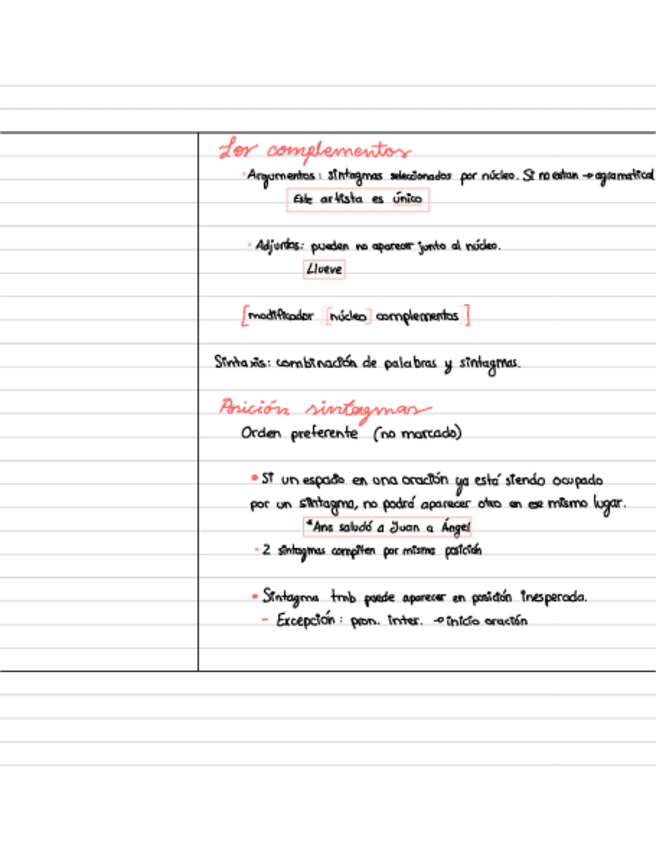 Los complementos
· Argumentos: sintagmas seleccionados por núcleo. Si no estan → agramatical
Este artista es único
· Adjuntos: pueden no aparecer junto al núcleo.
Llueve
[modificador [núcleo] complementos]
Sintaxis: combinación de palabras y sintagmas.
Posición sintagmas
Orden preferente (no marcado)
• Si un espacio en una oración ya está siendo ocupado
por un sintagma, no podrá aparecer otro en ese mismo lugar.
*Ana saludó a Juan a Ángel
- 2 sintagmas compiten por misma posición
• Sintagma tmb puede aparecer en posición inesperada.
- Excepción: pron. inter. → inicio oración